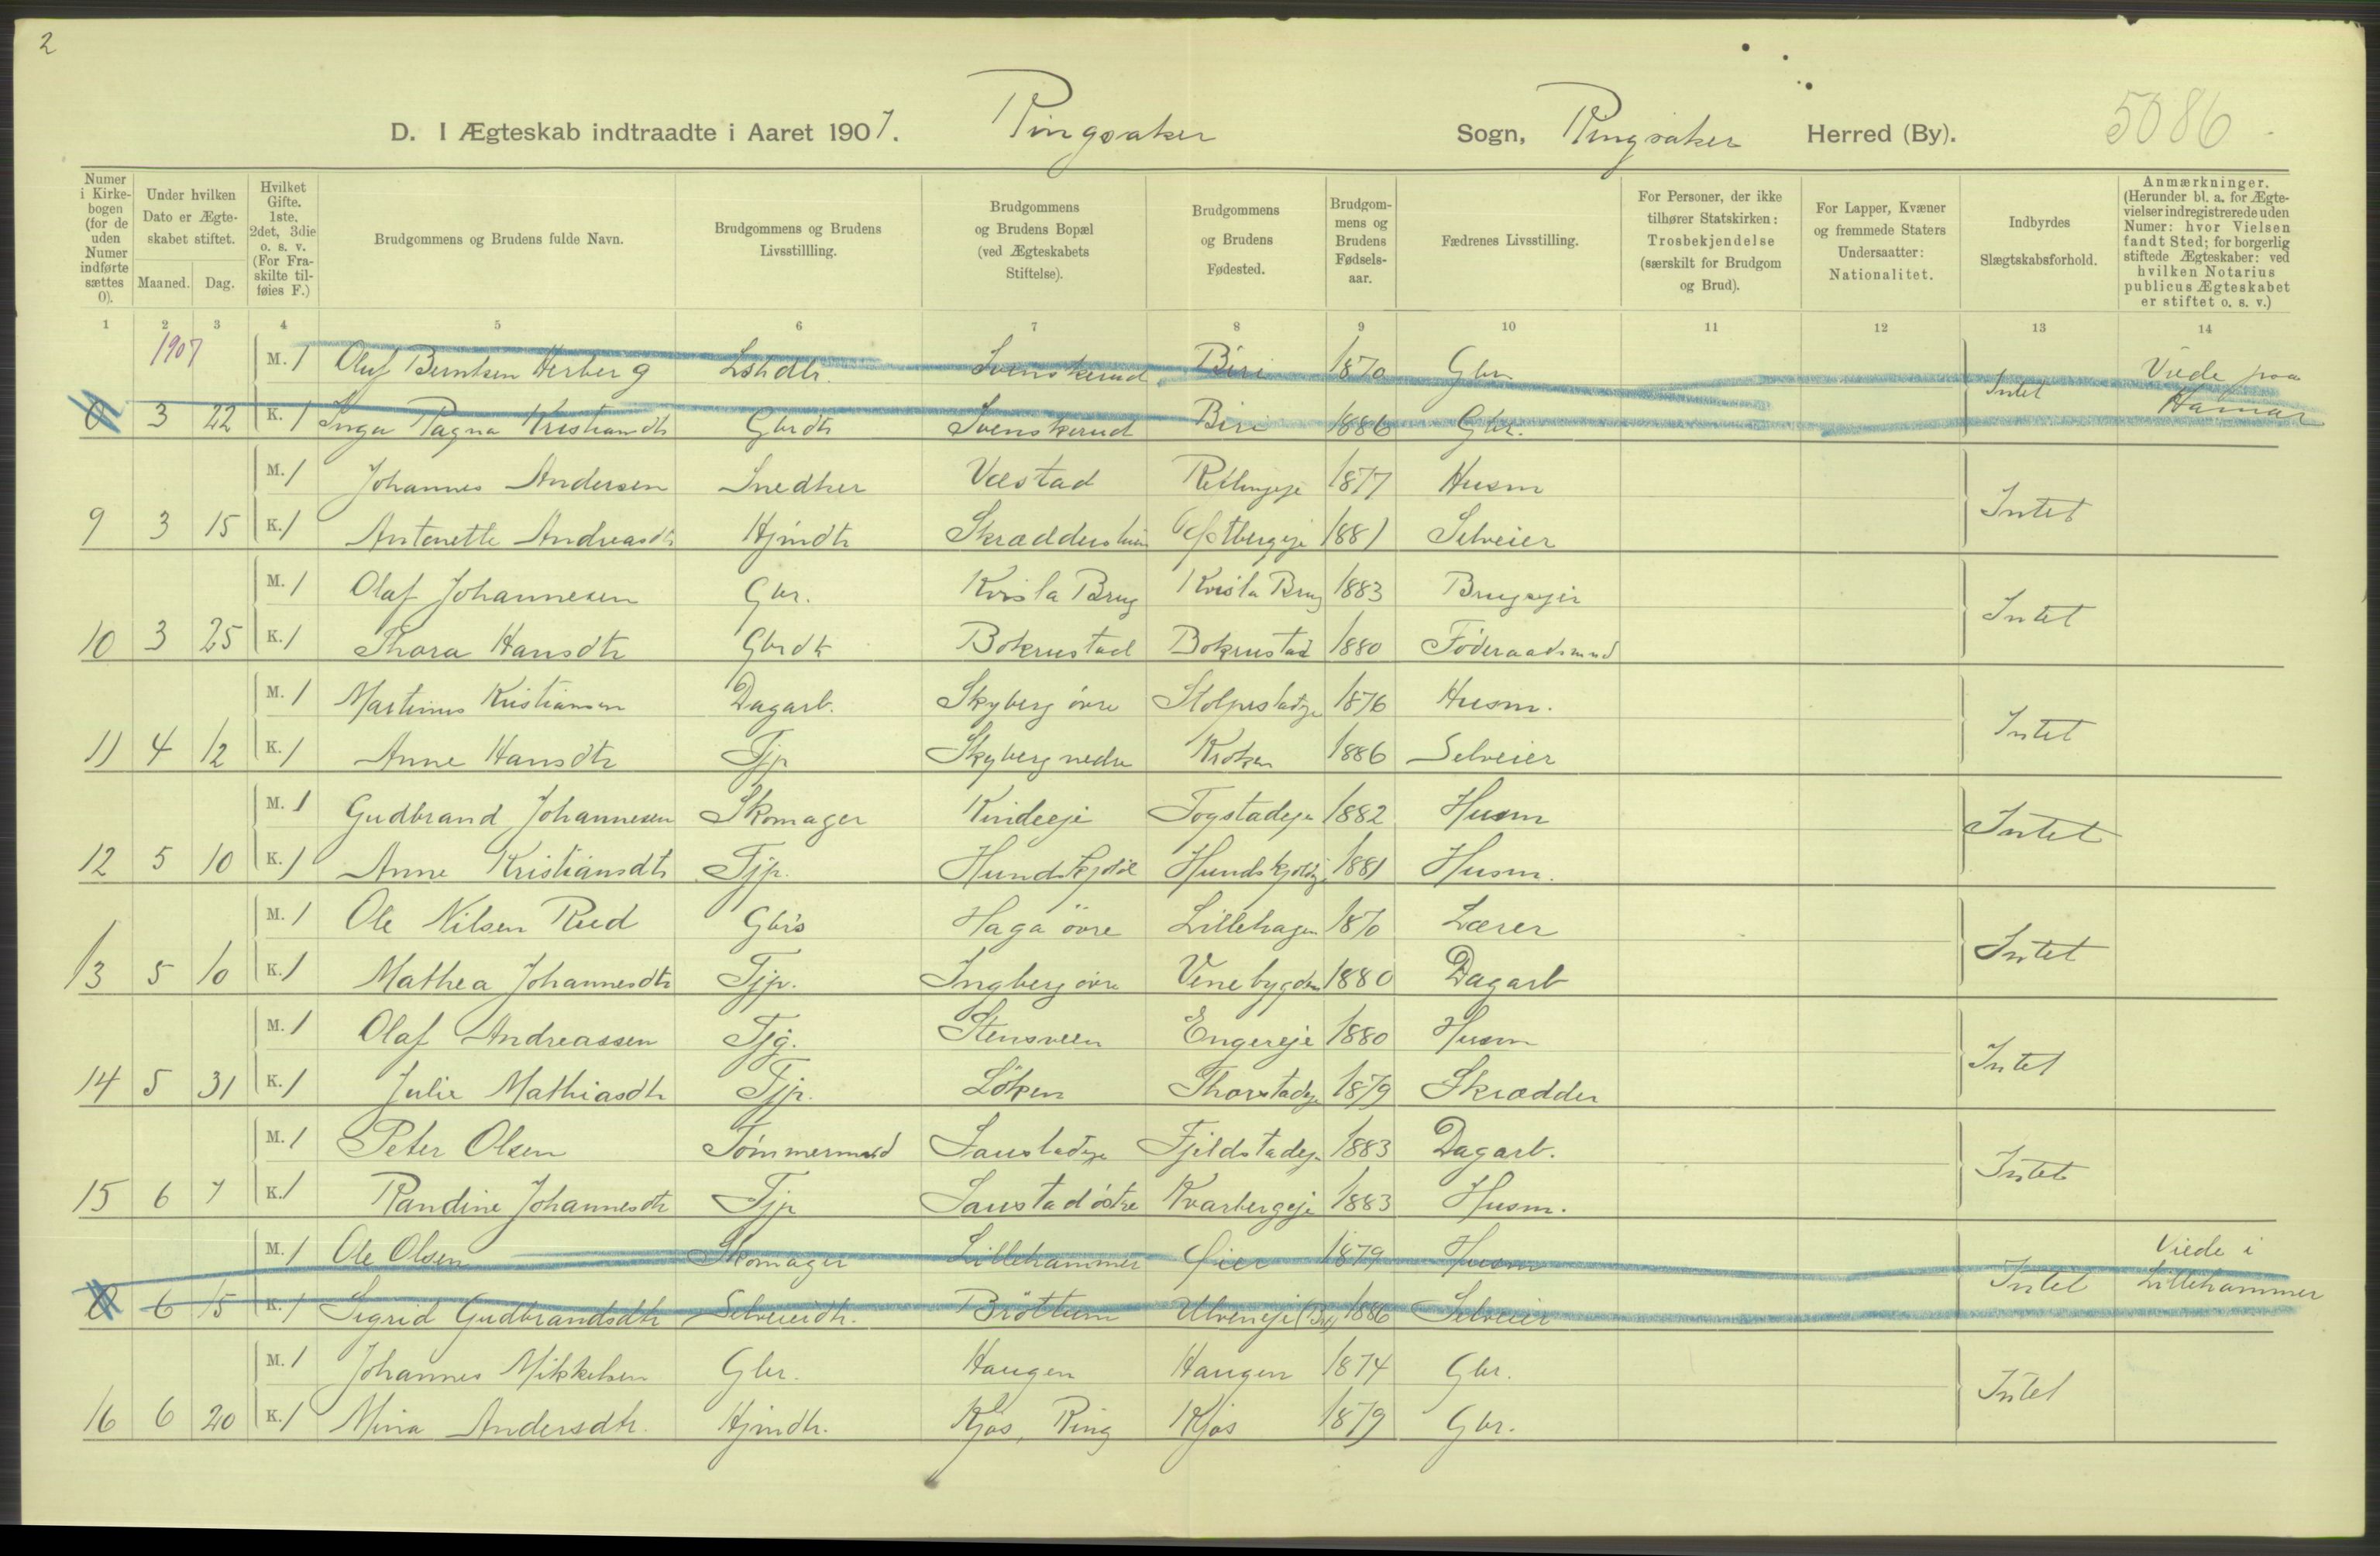 2
D. I Ægteskab indtraadte i Aaret 1907. Ringsaker Sogn, Ringsaker Herred (By). 5086
Numer i Kirkebogen (for de uden Numer indførte sættes 0).
Under hvilken Dato er Ægteskabet stiftet.
Maaned. Dag.
Hvilket Gifte. 1ste, 2det, 3die o. s. v. (For Fraskilte tilføies F.)
Brudgommens og Brudens fulde Navn.
Brudgommens og Brudens Livsstillling.
Brudgommens og Brudens Bopæl (ved Ægteskabets Stiftelse).
Brudgommens og Brudens Fødested.
Brudgommens og Brudens Fødselsaar.
Fædrenes Livsstilling.
For Personer, der ikke tilhører Statskirken: Trosbekjendelse (særskilt for Brudgom og Brud).
For Lapper, Kvæner og fremmede Staters Undersaatter: Nationalitet.
Indbyrdes Slægtskabsforhold.
Anmærkninger. (Herunder bl. a. for Ægtevielser indregistrerede uden Numer: hvor Vielsen fandt Sted; for borgerlig stiftede Ægteskaber: ved hvilken Notarius publicus Ægteskabet er stiftet o. s. v.)
1 2 3 4 5 6 7 8 9 10 11 12 13 14
1907 M. 1 Oluf Berntsen Herberg Svenskerud Biri 1870 Gbr. Viede paa
0 3 22 K. 1 Inga Kristiandtr Gbrdtr Svenskerud Biri 1886 Gbr. Intet Hamar
M. 1 Johannes Andersen Snedker Vælstad 1877 Husm
9 3 15 K. 1 Antonette Andreasdtr Hjmdtr 1881 Selveier Intet
M. 1 Olaf Johannesen Gbr. Kvisla Brug Kvisla Brug 1883 Brugseier
10 3 25 K. 1 Thora Hansdtr Gbrdtr Bokrustad Bokrustad 1880 Føderaadsmand Intet
M. 1 Martinus Kristiansen Dagarb. Skyberg övre 1876 Husm.
11 4 12 K. 1 Anne Hansdtr Tjp Skyberg nedre Kroken 1886 Selveier Intet
M. 1 Gudbrand Johannesen Skomager Kindeeje Fogstadeje 1882 Husm
12 5 10 K. 1 Anne Kristiansdtr Tjp. Hundskjold Hundskjoldeje 1881 Husm. Intet
M. 1 Ole Nilsen Rud Gbrs Haga övre Lillehagen 1870 Lærer
13 5 10 K. 1 Mathea Johannesdtr Tjp. Ingberg övre Venebygden 1880 Dagarb Intet
M. 1 Olaf Andreassen Tjg. Stensveen Engereje 1880 Husm
14 5 31 K. 1 Julie Mathiasdtr Tjp. Löken Thorstadeje 1879 Skrædder Intet
M. 1 Peter Olsen Tömmermand Saustadeje Fjeldstadeje 1883 Dagarb.
15 6 7 K. 1 Randine Johannesdtr Tjp Saustad östre Kvarbergeje 1883 Husm. Intet
M. 1 Ole Olsen Skomager Lillehammer Öier 1879 Husm Viede i
0 6 15 K. 1 Sigrid Gudbrandsdtr Selveierdtr. Bröttum 1886 Selveier Intet Lillehammer
M. 1 Johannes Mikkelsen Gbr. Haugen Haugen 1874 Gbr.
16 6 20 K. 1 Mina Andersdtr. Hjmdtr. Kjos, Ring Kjos 1879 Gbr. Intet